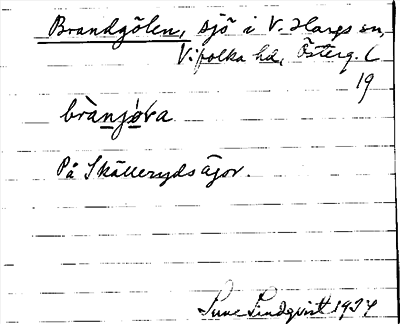 Brandgölen, sjö i V. Hargs sn,
Vifolka hd, Österg. l.
19
brànjøva
På Skälleryds ägor.
Sune Lindqvist 1934